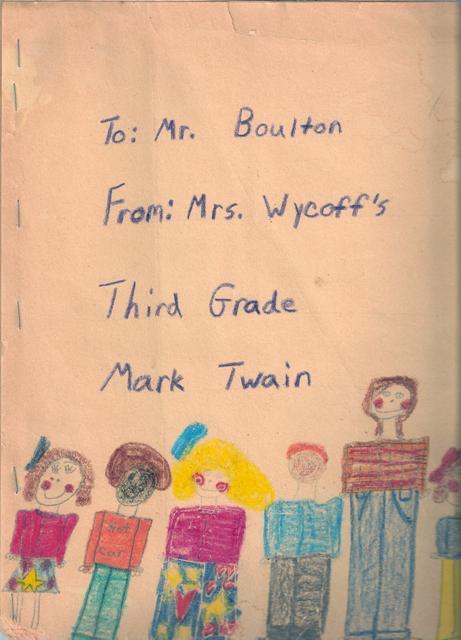 To: Mr. Boulton
From: Mrs. Wycoff's
Third Grade
Mark Twain
Hot
Car